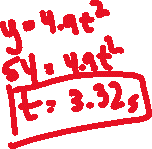 y = 4.9t²
54 = 4.9t²
t = 3.32s